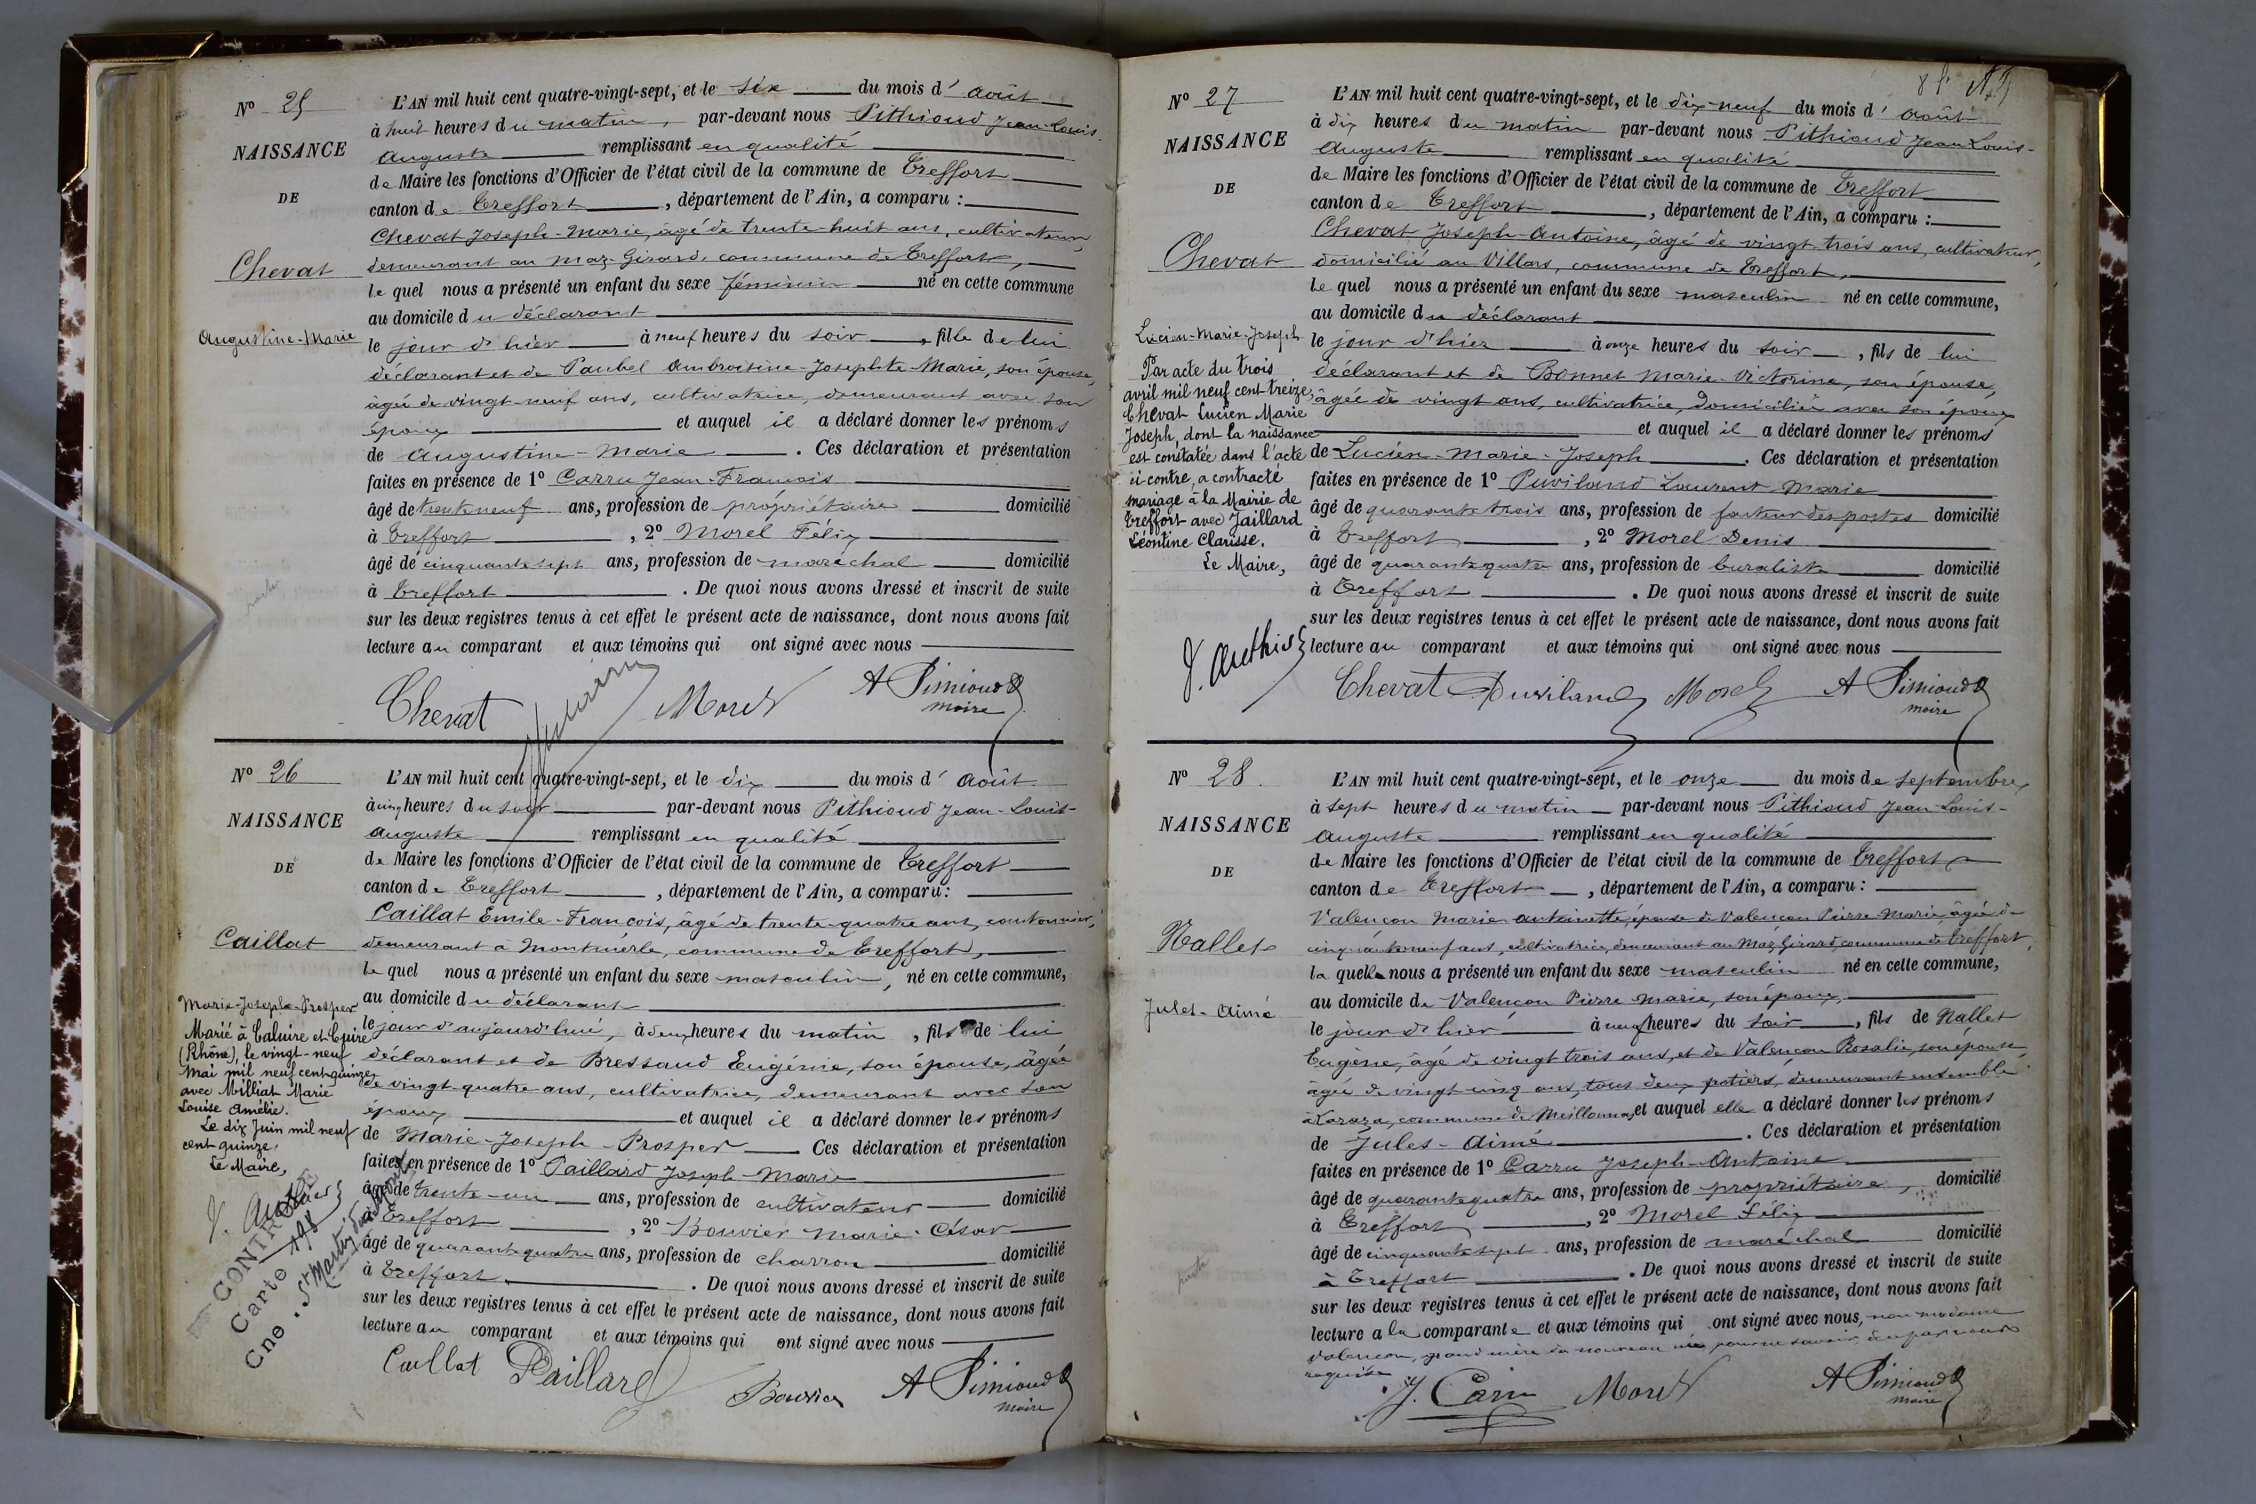 Nº 25
NAISSANCE
DE
Chevat
Augustine-Marie
L'AN mil huit cent quatre-vingt-sept, et le six du mois d'août
à huit heures du matin, par-devant nous Pithioud Jean-Louis-
Auguste remplissant en qualité
de Maire les fonctions d'Officier de l'état civil de la commune de Treffort
canton de Treffort, département de l'Ain, a comparu :
Chevat Joseph-Marie, âgé de trente-huit ans, cultivateur,
demeurant au Maz-Girard, commune de Treffort,
lequel nous a présenté un enfant du sexe féminin né en cette commune
au domicile du déclarant
le jour d'hier à neuf heures du soir, fille de lui
déclarant et de Paubel Ambroisine-Josephte-Marie, son épouse,
âgée de vingt-neuf ans, cultivatrice, demeurant avec son
époux et auquel il a déclaré donner les prénoms
de Augustine-Marie. Ces déclaration et présentation
faites en présence de 1º Carru Jean-François
âgé de trente neuf ans, profession de propriétaire domicilié
à Treffort, 2º Morel Félix
âgé de cinquante sept ans, profession de maréchal domicilié
à Treffort. De quoi nous avons dressé et inscrit de suite
sur les deux registres tenus à cet effet le présent acte de naissance, dont nous avons fait
lecture au comparant et aux témoins qui ont signé avec nous
Chevat Morel A Pithioud
maire
Nº 26
NAISSANCE
DE
Caillat
Marie-Joseph-Prosper
Marié à Caluire et Cuire
(Rhône), le vingt-neuf
mai mil neuf cent quinze
avec Milliat Marie
Louise Amélie.
Le dix Juin mil neuf
cent quinze.
Le Maire,
J. Authier
CONTROLE
Carte 198
Cne : St Martin
L'AN mil huit cent quatre-vingt-sept, et le dix du mois d'août
à cinq heures du soir par-devant nous Pithioud Jean-Louis-
Auguste remplissant en qualité
de Maire les fonctions d'Officier de l'état civil de la commune de Treffort
canton de Treffort, département de l'Ain, a comparu :
Caillat Emile-François, âgé de trente-quatre ans, cantonnier,
demeurant à Montmerle, commune de Treffort,
lequel nous a présenté un enfant du sexe masculin, né en cette commune,
au domicile du déclarant
le jour d'aujourd'hui, à deux heures du matin, fils de lui
déclarant et de Bressaud Eugénie, son épouse, âgée
de vingt-quatre ans, cultivatrice, demeurant avec son
époux et auquel il a déclaré donner les prénoms
de Marie-Joseph-Prosper Ces déclaration et présentation
faites en présence de 1º Paillard Joseph-Marie
âgé de trente-un ans, profession de cultivateur domicilié
à Treffort, 2º Bouvier Marie-César
âgé de quarante quatre ans, profession de charron domicilié
à Treffort. De quoi nous avons dressé et inscrit de suite
sur les deux registres tenus à cet effet le présent acte de naissance, dont nous avons fait
lecture au comparant et aux témoins qui ont signé avec nous
Caillat Paillard Bouvier A Pithioud
maire
Nº 27
NAISSANCE
DE
Chevat
Lucien-Marie-Joseph
Par acte du trois
avril mil neuf cent treize,
Chevat Lucien Marie
Joseph, dont la naissance
est constatée dans l'acte
ci-contre, a contracté
mariage à la Mairie de
Treffort avec Jaillard
Léontine Clarisse.
Le Maire,
J. Authier
L'AN mil huit cent quatre-vingt-sept, et le dix-neuf du mois d'août
à dix heures du matin par-devant nous Pithioud Jean Louis-
Auguste remplissant en qualité
de Maire les fonctions d'Officier de l'état civil de la commune de Treffort
canton de Treffort, département de l'Ain, a comparu :
Chevat Joseph-Antoine, âgé de vingt-trois ans, cultivateur,
domicilié au Villars, commune de Treffort,
lequel nous a présenté un enfant du sexe masculin né en cette commune,
au domicile du déclarant
le jour d'hier à onze heures du soir, fils de lui
déclarant et de Bonnet Marie-Victorine, son épouse,
âgée de vingt ans, cultivatrice, domiciliée avec son époux
et auquel il a déclaré donner les prénoms
de Lucien-Marie-Joseph. Ces déclaration et présentation
faites en présence de 1º Puviland Laurent-Marie
âgé de quarante trois ans, profession de facteur des postes domicilié
à Treffort, 2º Morel Denis
âgé de quarante quatre ans, profession de buraliste domicilié
à Treffort. De quoi nous avons dressé et inscrit de suite
sur les deux registres tenus à cet effet le présent acte de naissance, dont nous avons fait
lecture au comparant et aux témoins qui ont signé avec nous
Chevat Puviland Morel A Pithioud
maire
Nº 28
NAISSANCE
DE
Nallet
Jules-Aimé
L'AN mil huit cent quatre-vingt-sept, et le onze du mois de septembre,
à sept heures du matin par-devant nous Pithioud Jean Louis-
Auguste remplissant en qualité
de Maire les fonctions d'Officier de l'état civil de la commune de Treffort
canton de Treffort, département de l'Ain, a comparu :
Valençon Marie-Antoinette, épouse de Valençon Pierre-Marie, âgée de
cinquante neuf ans, cultivatrice, demeurant au Maz-Girard, commune de Treffort,
laquelle nous a présenté un enfant du sexe masculin né en cette commune,
au domicile de Valençon Pierre-Marie, son époux,
le jour d'hier à neuf heures du soir, fils de Nallet
Eugène, âgé de vingt trois ans, et de Valençon Rosalie, son épouse,
âgée de vingt-cinq ans, tous deux potiers, demeurant ensemble
commune de Meillonnas, et auquel elle a déclaré donner les prénoms
de Jules-Aimé. Ces déclaration et présentation
faites en présence de 1º Carru Joseph-Antoine
âgé de quarante quatre ans, profession de propriétaire, domicilié
à Treffort, 2º Morel Félix
âgé de cinquante sept ans, profession de maréchal domicilié
à Treffort. De quoi nous avons dressé et inscrit de suite
sur les deux registres tenus à cet effet le présent acte de naissance, dont nous avons fait
lecture a la comparante et aux témoins qui ont signé avec nous, non madame
Valençon, grand'mère du nouveau né, pour ne savoir, de ce par nous
requise
J. Carru Morel A Pithioud
maire